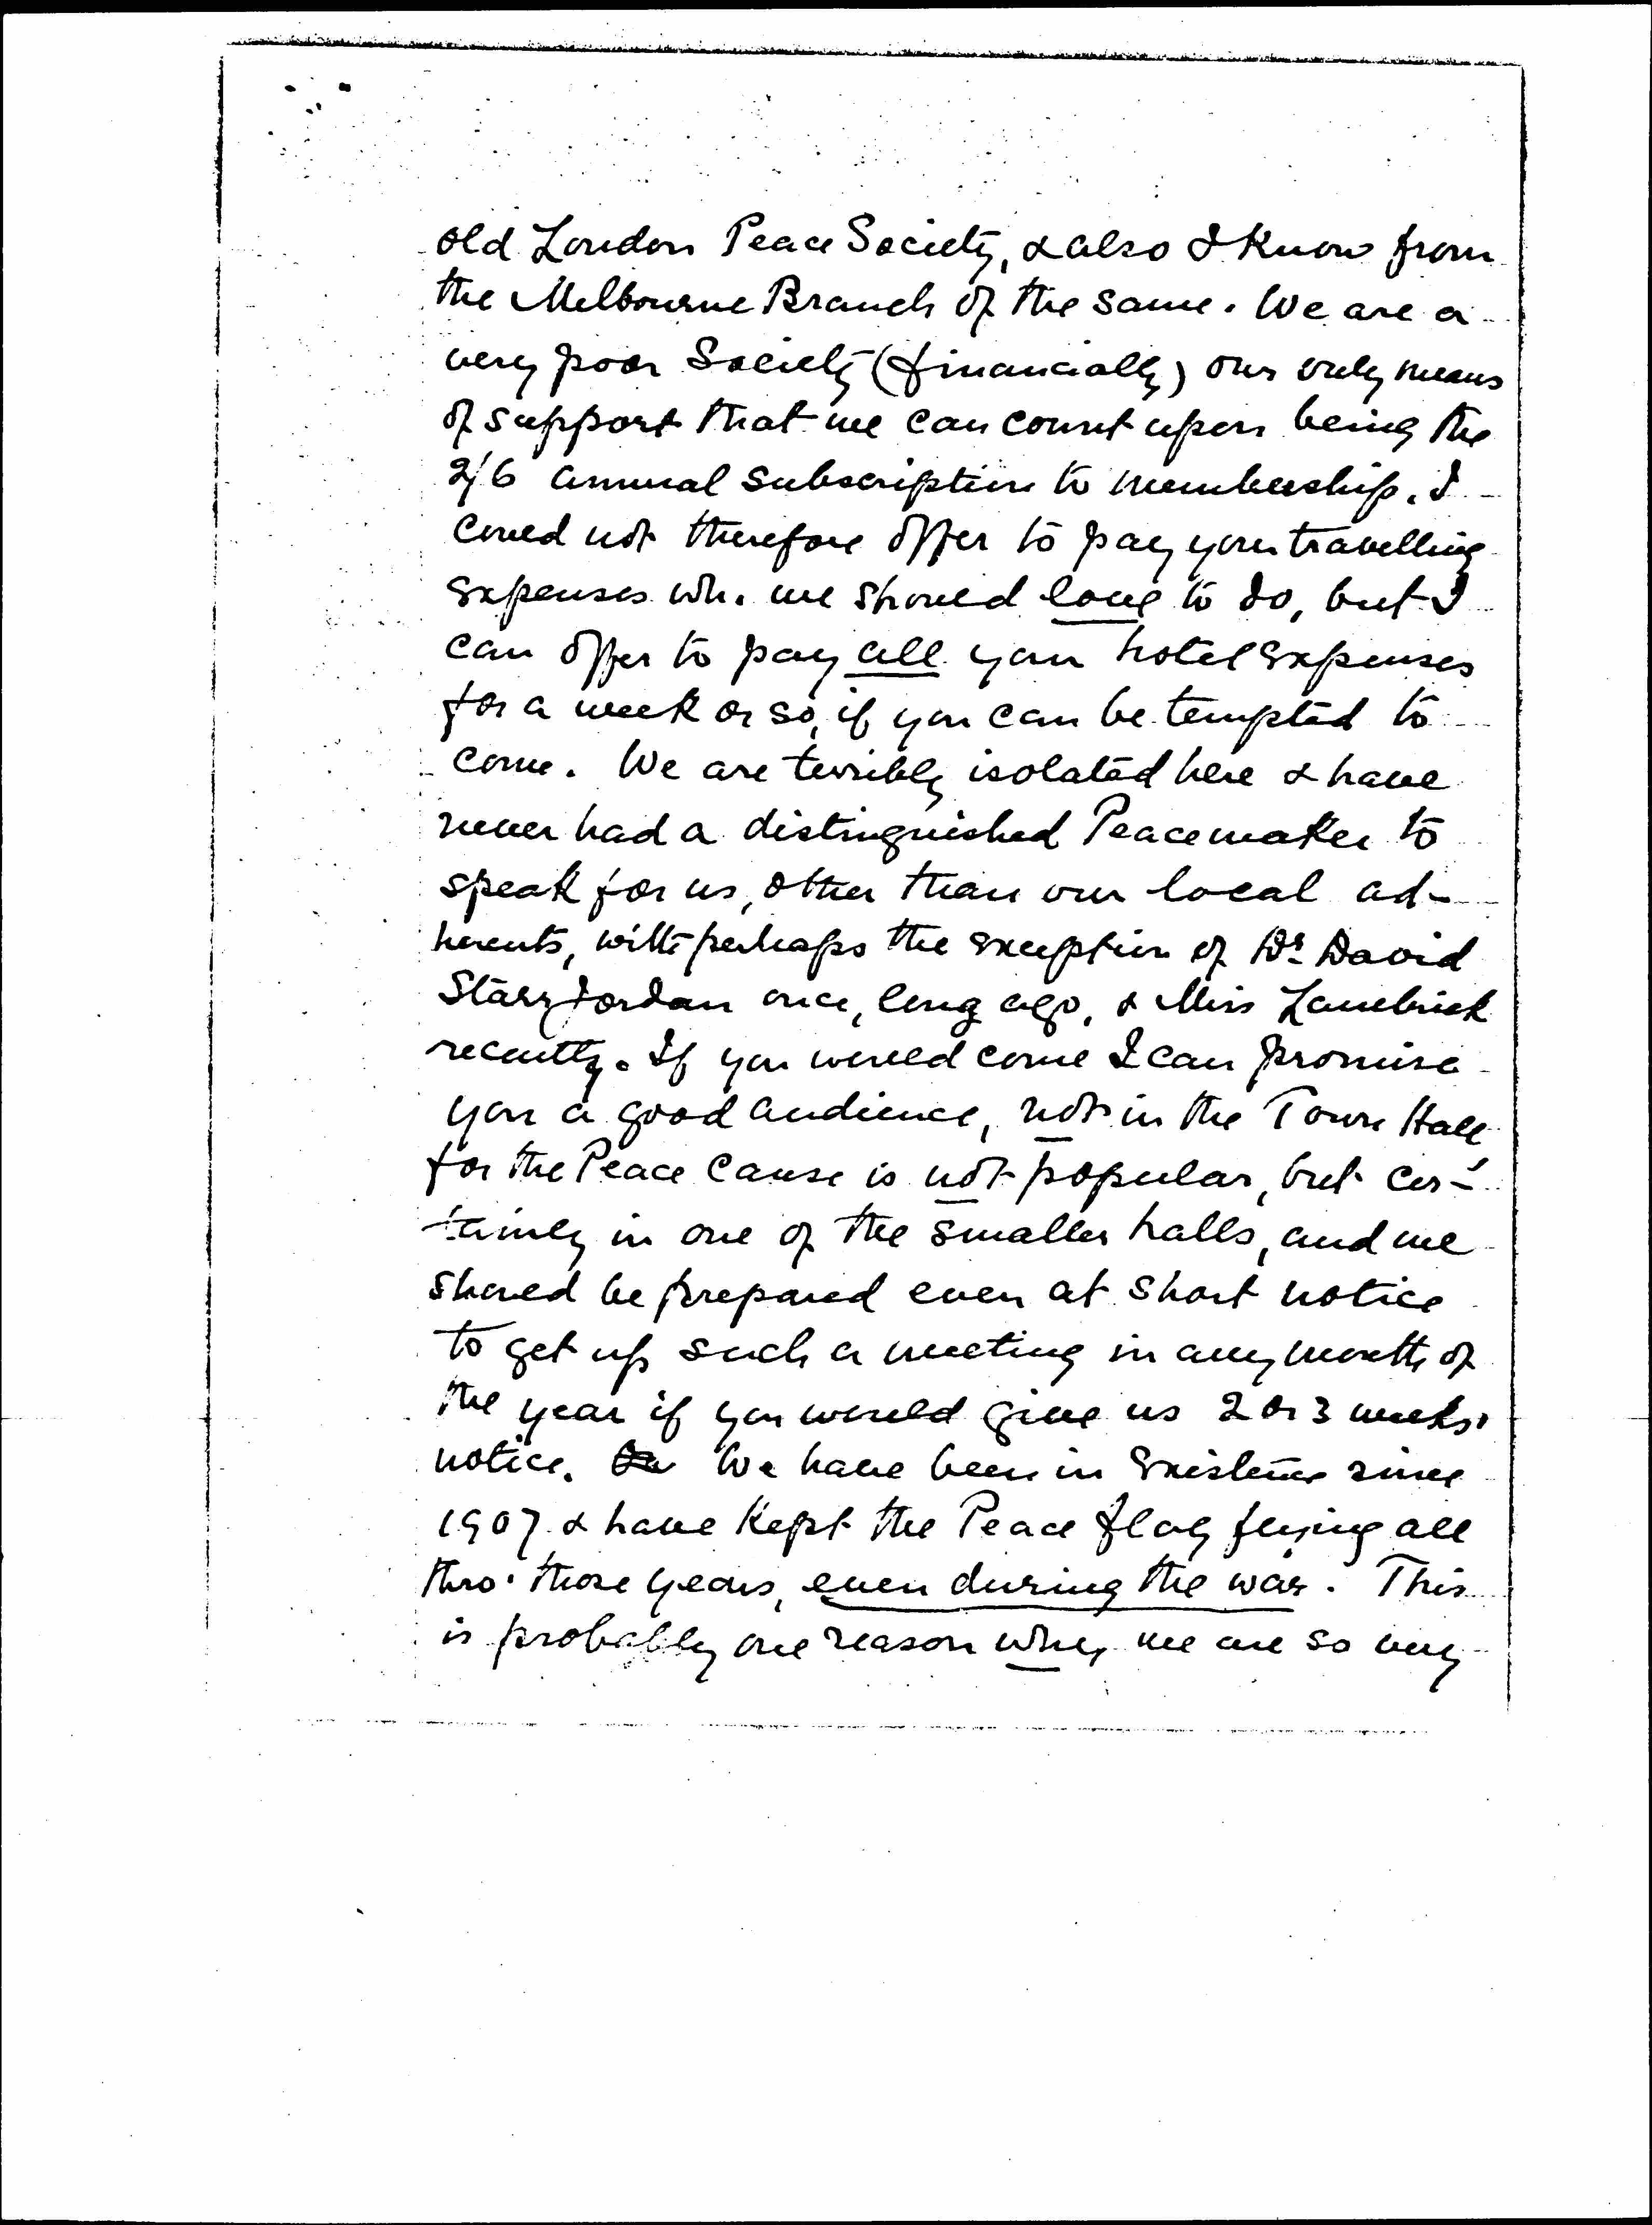 old London Peace Society, & also I know from
the Melbourne Branch of the same. We are a
very poor Society (financially) our only means
of support that we can count upon being the
2/6 annual subscription to membership. I
could not therefore offer to pay your travelling
expenses wh. we should love to do, but I
can offer to pay all your hotel expenses
for a week or so, if you can be tempted to
come. We are terribly isolated here & have
never had a distinguished Peacemaker to
speak for us, other than our local ad-
herents, with perhaps the exception of Dr David
Starr Jordan once, long ago, & Miss
recently. If you would come I can promise
you a good audience, not in the Town Hall
for the Peace Cause is not popular, but cer-
tainly in one of the smaller halls, and we
should be prepared even at short notice
to get up such a meeting in any month of
the year if you would give us 2 or 3 weeks'
notice. We have been in existence since
1907 & have kept the Peace flag flying all
thro' those years, even during the war. This
is probably one reason why we are so very